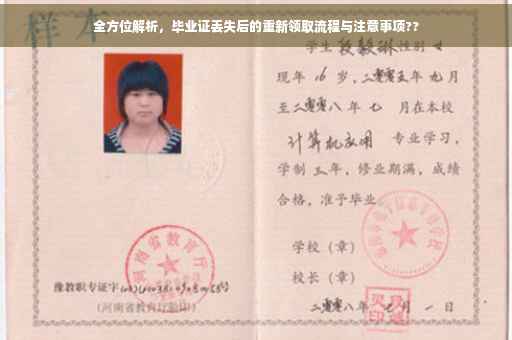 全方位解析，毕业证丢失后的重新领取流程与注意事项??
样本
学生 段毅琳 性别 女
现年 16 岁，二零零五年 九月
至二零零八年 七 月在本校
计算机应用 专业学习，
学制 三 年，修业期满，成绩
合格，准予毕业
学校（章）
校长（章）
二零零八年 七月 一日
河南省教育厅
豫教职专证字
(河南省教育厅验印)